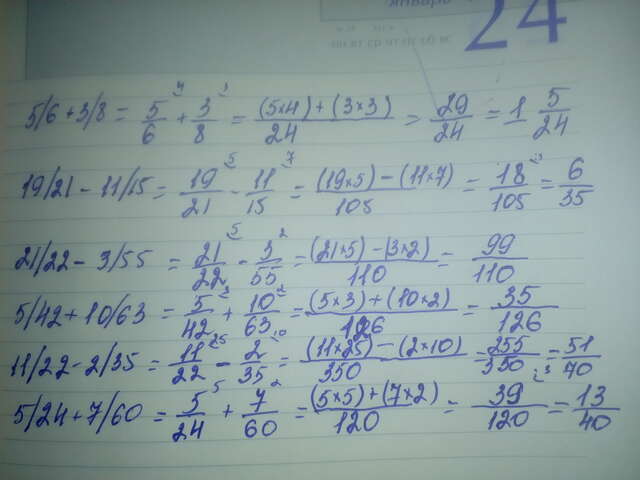 январь
24
5/6 + 3/8 = 5/6 ⁴ + 3/8 ³ = (5×4) + (3×3)/24 = 29/24 = 1 5/24
19/21 - 11/15 = 19/21 ⁵ - 11/15 ⁷ = (19×5) - (11×7)/105 = 18/105 ³ = 6/35
21/22 - 3/55 = 21/22 ⁵ - 3/55 ² = (21×5) - (3×2)/110 = 99/110
5/42 + 10/63 = 5/42 ³ + 10/63 ² = (5×3) + (10×2)/126 = 35/126
11/22 - 2/35 = 11/22 ²⁵ - 2/35 ¹⁰ = (11×25) - (2×10)/350 = 255/350 = 51/70
5/24 + 7/60 = 5/24 ⁵ + 7/60 ² = (5×5) + (7×2)/120 = 39/120 ³ = 13/40